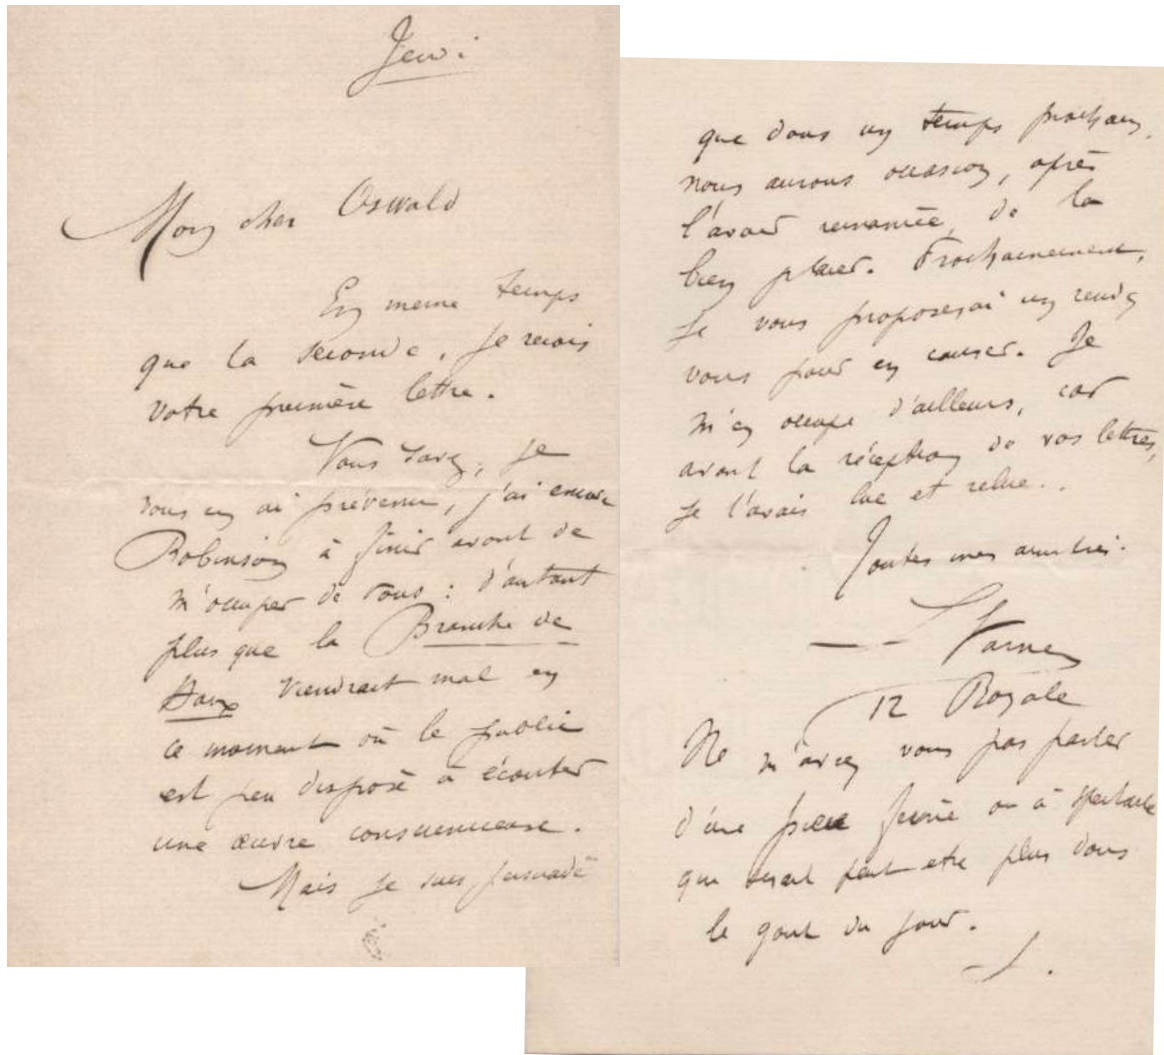 Jeudi
Mon cher Oswald
En meme temps
que la seconde, je recois
votre première lettre.
Vous savez, je
vous en ai prévenu, j'ai encore
Robinson à finir avant de
m'occuper de vous : d'autant
plus que la Branche de
Houx viendrait mal en
ce moment où le public
est peu disposé à écouter
une œuvre consciencieuse.
Mais je suis persuadé
que dans un temps prochain,
nous aurons occasion, après
l'avoir remaniée, de la
bien placer. Prochainement,
je vous proposerai un rendez
vous pour en causer. Je
m'en occupe d'ailleurs, car
avant la réception de vos lettres,
je l'avais lue et relue..
Toutes mes amitiés.
L Varney
12 Royale
Ne m'aviez vous pas parler
d'une piece féerie ou à spectacle
qui serait peut etre plus dans
le gout du jour.
L.